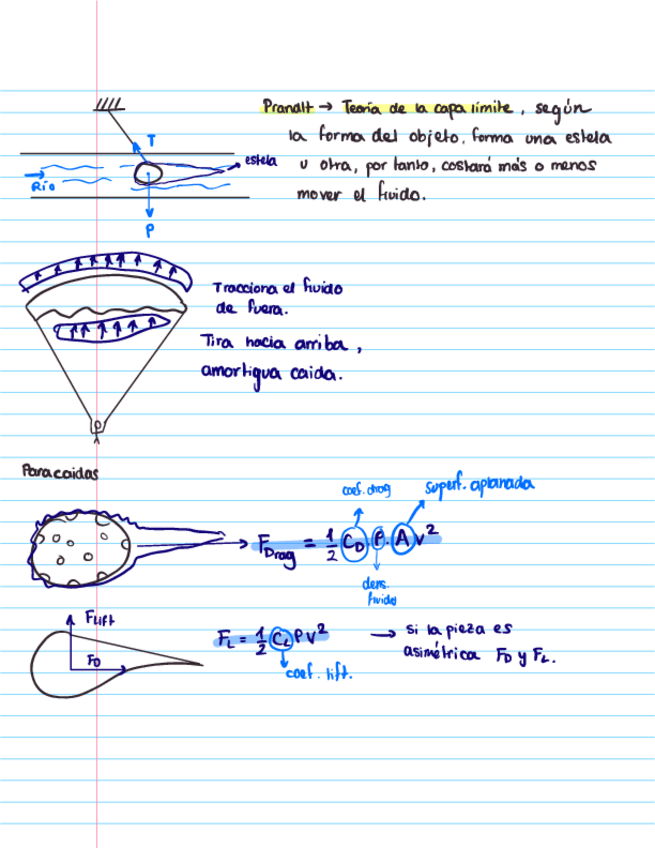 Prandlt → Teoría de la capa límite, según
la forma del objeto, forma una estela
u otra, por tanto, costará más o menos
mover el fluido.
T
estela
Río
P
Tracciona el fluido
de fuera.
Tira hacia arriba,
amortigua caida.
Paracaidas
coef. drag
superf. aplanada
F_Drag = 1/2 C_D ρ · A v²
dens.
fluido
F_Lift
F_D
F_L = 1/2 C_L ρ v² → si la pieza es
asimétrica F_D y F_L.
coef. lift.